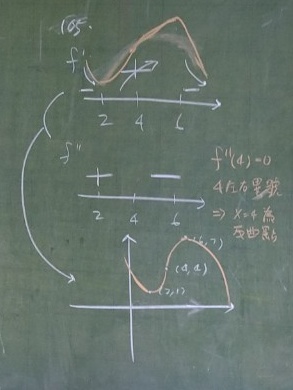 105.
f'
− + −
2 4 6
f"
+ −
2 4 6
f"(4)=0
4左右異號
⇒ x=4 為
反曲點
(6,7)
(4,4)
(2,1)